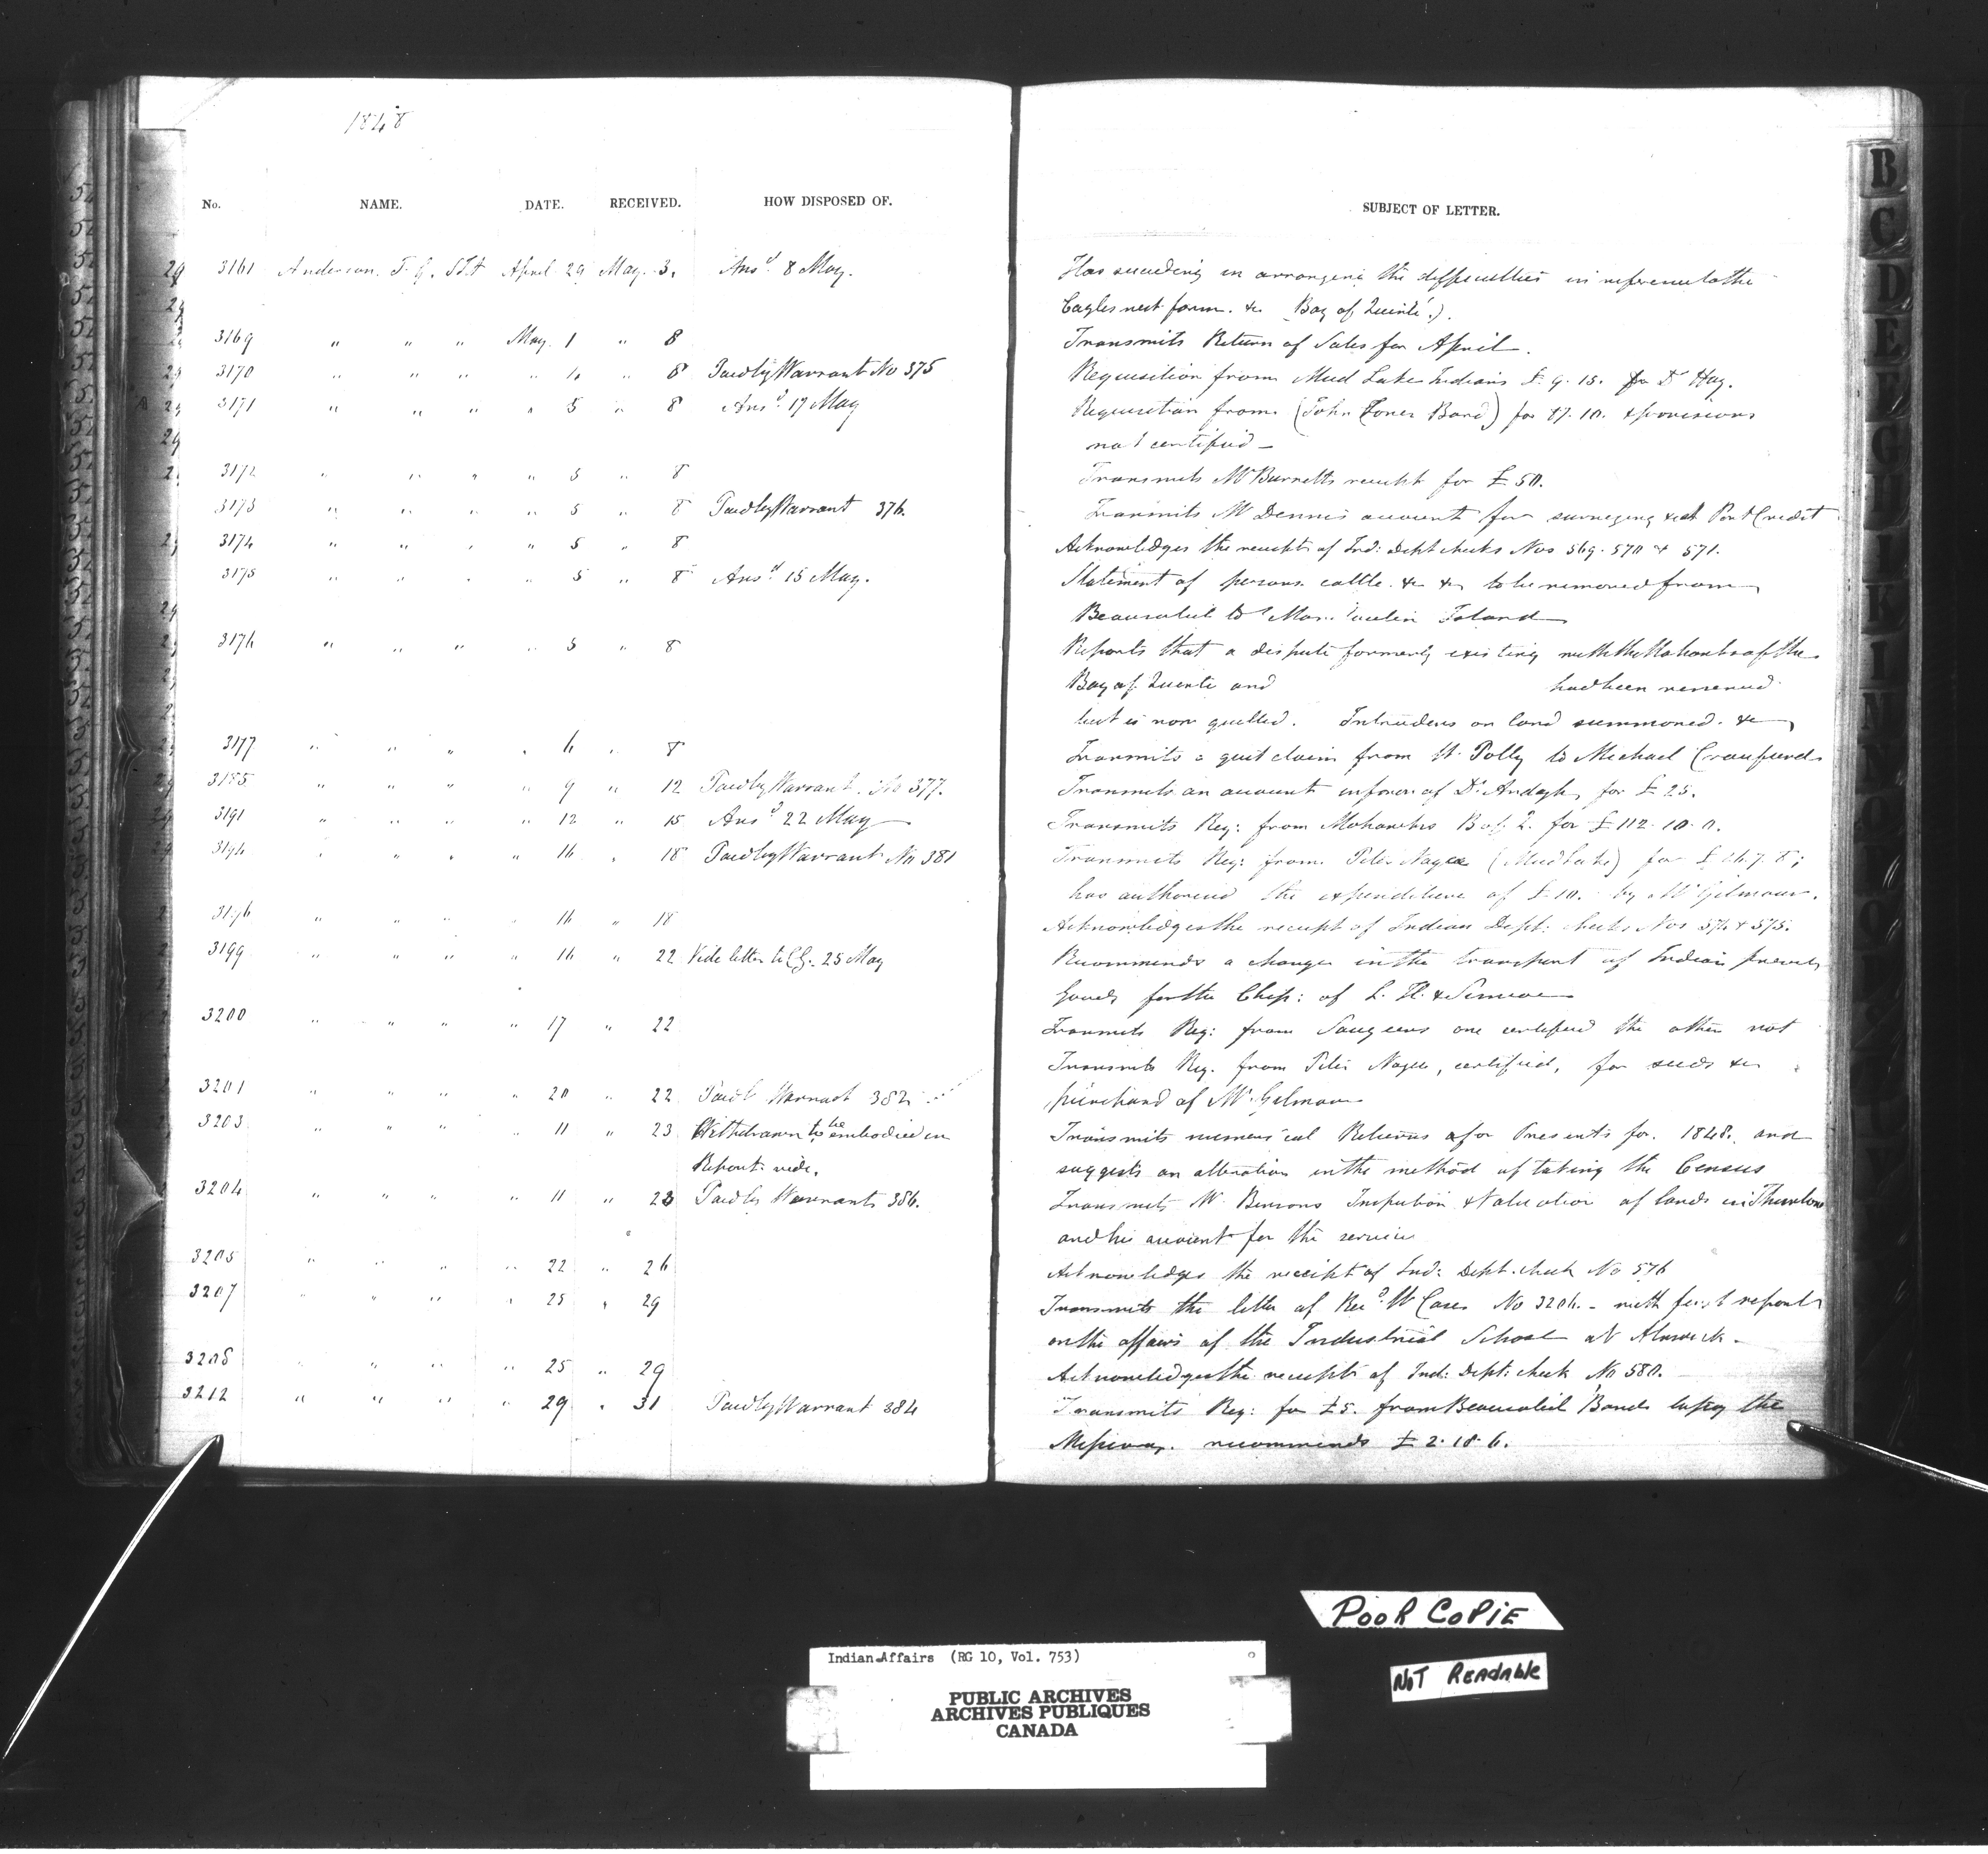 1848
No. NAME. DATE. RECEIVED. HOW DISPOSED OF. SUBJECT OF LETTER.
3161 Anderson. T. G. S.I.A April 29 May 3. Ansd. 8 May. Has succeeding in arranging the difficulties in reference to the
Eagles nest farm. &c Bay of Quinté.).
3169 " " " May 1 " 8 Transmits Return of Sales for April.
3170 " " " " " 8 Paid by Warrant No 375 Requisition from Mud Lake Indians £9.15. for Dr Hay.
3171 " " " " 5 " 8 Ansd. 17 May Requisition from (John Band) for 17.10. & provisions
not certified —
3172 " " " " 5 " 8 Transmits Mr Burnetts receipt for £50.
3173 " " " " 5 " 8 Paid by Warrant 376. Transmits Mr Dennis account for surveying &c at Port Credit
3174 " " " " 5 " 8 Acknowledges the receipt of Ind: Dept checks Nos 569. 570 & 571.
3175 " " " " 5 " 8 Ansd 15 May. Statement of persons cattle. &c &c to be removed from
Beausoleil to Island
3176 " " " " 5 " 8 Reports that a dispute formerly existing with the Mohawks of the
Bay of Quinte and had been renewed
but is now quelled. Intruders on land summoned. &c
3177 " " " " 6 " 8 Transmits a quit claim from W. Polly to Michael Craufurd
3185 " " " " 9 " 12 Paid by Warrant. No 377. Transmits an account in favor of Dr. Ardagh, for £25.
3191 " " " " 12 " 15 Ansd 22 May Transmits Req: from Mohawks B of Q. for £112.10.0.
3194 " " " " 16 " 18 Paid by Warrant No 381 Transmits Req: from Peter Nogee (Mud Lake) for £26.7.8;
has authorized the expenditure of £10. by Mr Gilmour.
3196 " " " " 16 " 18 Acknowledges the receipt of Indian Dept: checks Nos 574 & 575.
3199 " " " " 16 " 22 Vide letter to C.G. 25 May Recommends a change in the transport of Indian presents
Goods for the Chip: of L. H. & Simcoe
3200 " " " " 17 " 22 Transmits Req: from Saugeens one certified the other not
Transmits Req. from Peter Nogee, certified, for seeds &c
3201 " " " " 20 " 22 Paid Warrant 382 purchased of Mr. Gilmour
3203 " " " " 11 " 23 Withdrawn to be embodied in Transmits numerical Returns for Presents for. 1848. and
Report vide. suggests an alteration in the method of taking the Census
3204 " " " " 11 " 23 Paid by Warrants 386. Transmits Mr. Bensons Inspection & Valuation of lands in Thurlow
and his account for the service
3205 " " " " 22 " 26 Acknowledges the receipt of Ind: Dept. check No 576
3207 " " " " 25 " 29 Transmits the letter of Revd. W Case No 3206. — with first report
on the affairs of the Industrial School at Alnwick —
3208 " " " " 25 " 29 Acknowledges the receipt of Ind: Dept: check No 580.
3212 " " " " 29 " 31 Paid by Warrant 384 Transmits Req: for £5. from Beausoleil Band the
recommends £2.18.6.
B
C
D
E
F
G
POOR COPIE
NOT READABLE
Indian Affairs (RG 10, Vol. 753)
PUBLIC ARCHIVES
ARCHIVES PUBLIQUES
CANADA